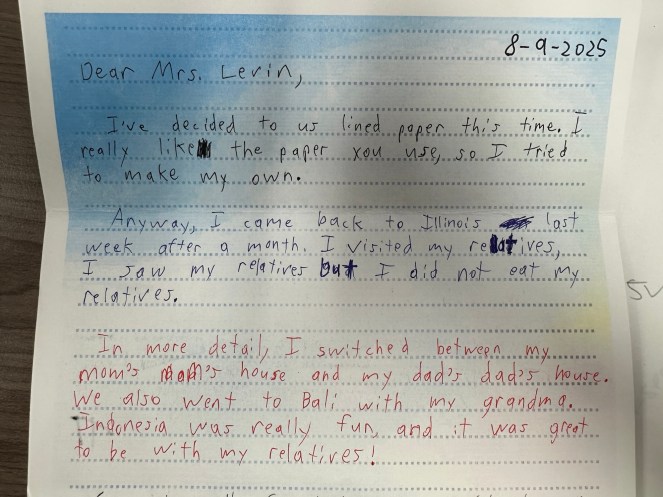 8-9-2025
Dear Mrs. Levin,
I've decided to us lined paper this time. I
really like the paper you use, so I tried
to make my own.
Anyway, I came back to Illinois last
week after a month. I visited my relatives,
I saw my relatives but I did not eat my
relatives.
In more detail, I switched between my
mom's mom's house and my dad's dad's house.
We also went to Bali with my grandma.
Indonesia was really fun, and it was great
to be with my relatives!